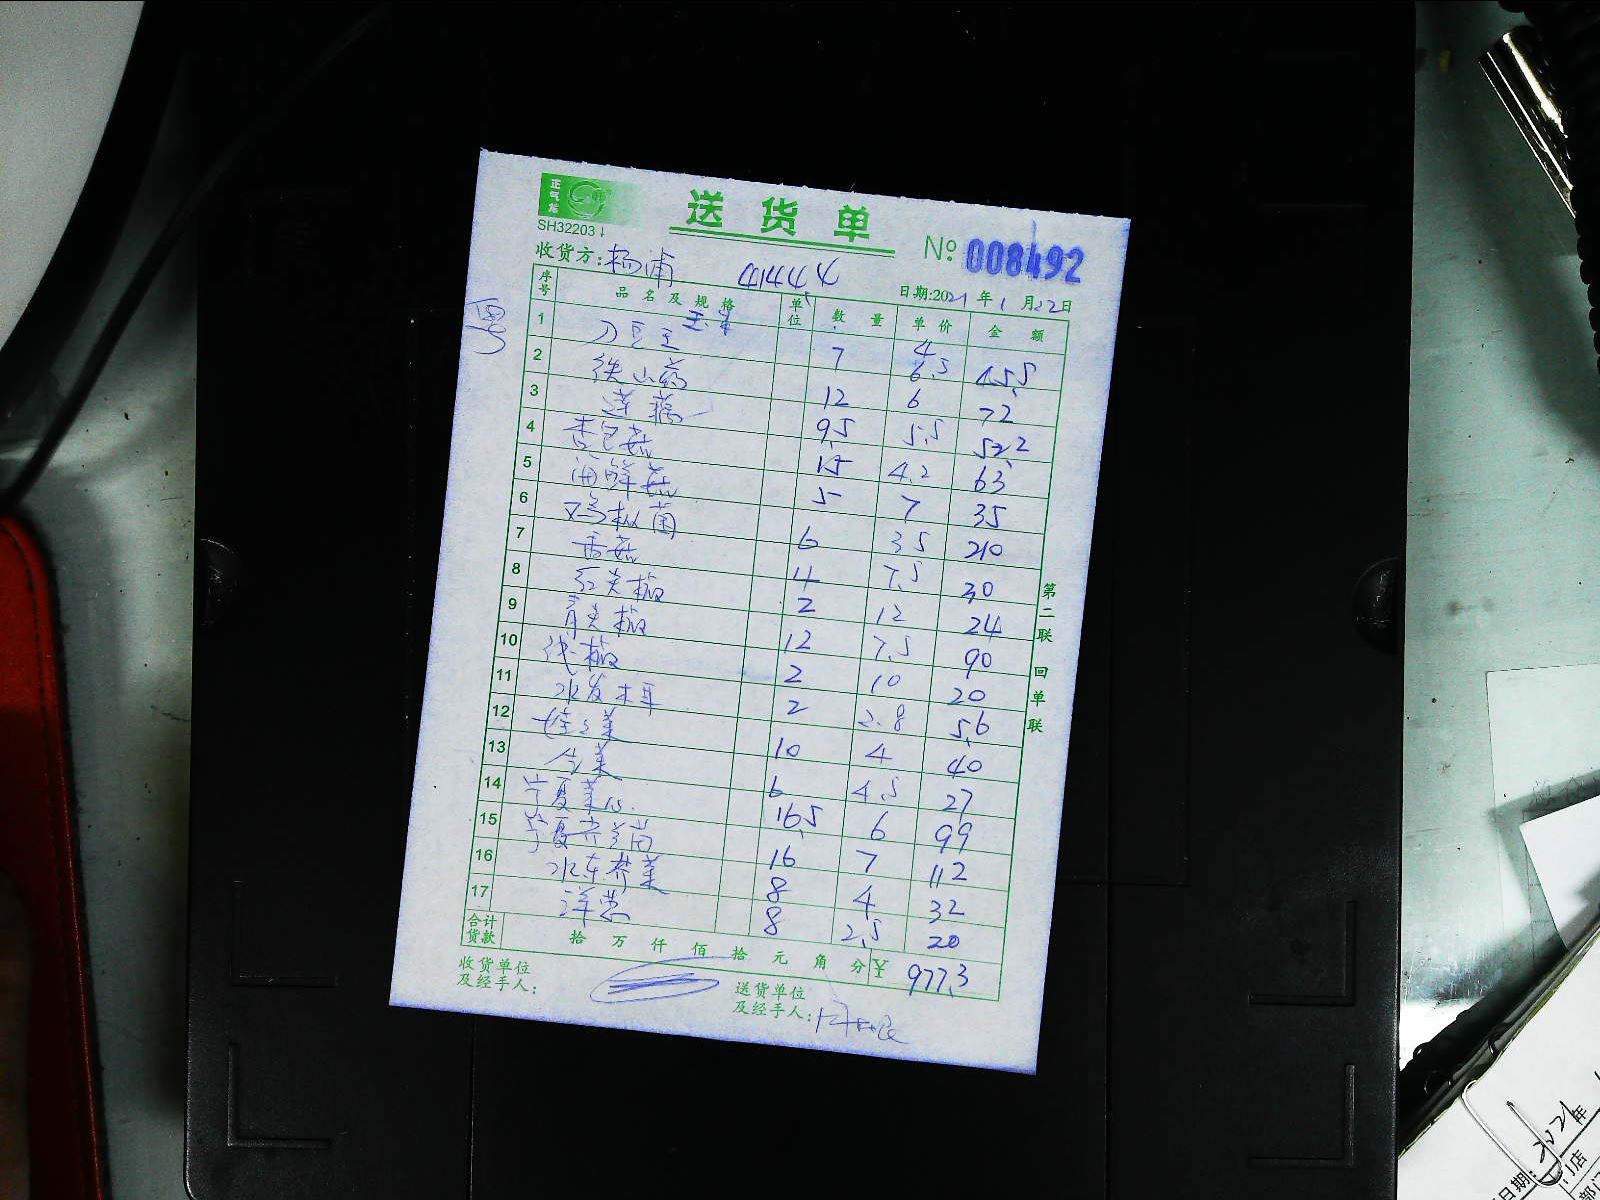 正气怡
送货单
SH32203
№ 008492
收货方:杨浦 41444
日期:2021年1月22日
序号 品名及规格 单位 数量 单价 金额
1 刀豆 7 6.5 45.5
2 铁山药 12 6 72
3 莲藕 9.5 5.5 52.2
4 杏包菇 15 4.2 63
5 海鲜菇 5 7 35
6 鸡枞菌 6 35 210
7 香菇 4 7.5 30
8 红尖椒 2 12 24
9 青尖椒 12 7.5 90
10 线椒 2 10 20
11 水发木耳 2 2.8 5.6
12 娃娃菜 10 4 40
13 6 4.5 27
14 宁夏菜心 16.5 6 99
15 宁夏芥兰苗 16 7 112
16 水东芥菜 8 4 32
17 洋葱 8 2.5 20
合计货款 拾万仟佰拾元角分 ¥ 977.3
收货单位及经手人:
送货单位及经手人:
第二联 回单联
2021年
日期:
门店